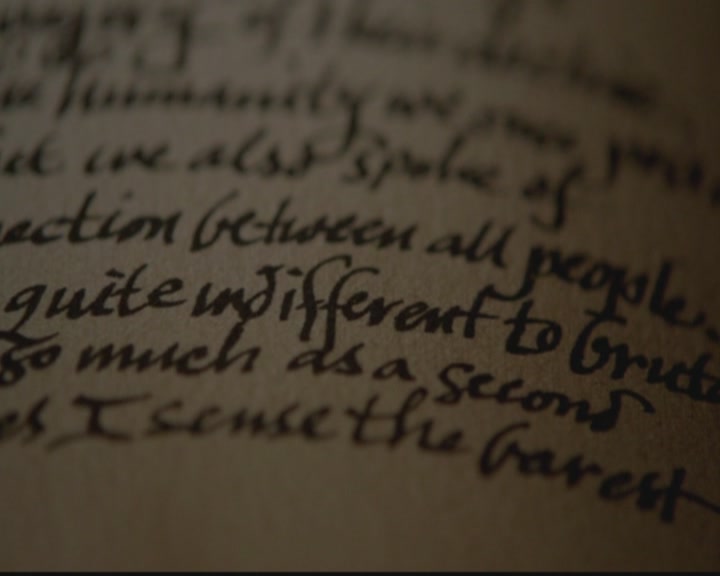 humanity we
we also spoke of
ection between all people.
quite indifferent to brute
so much as a second
es I sense the barest